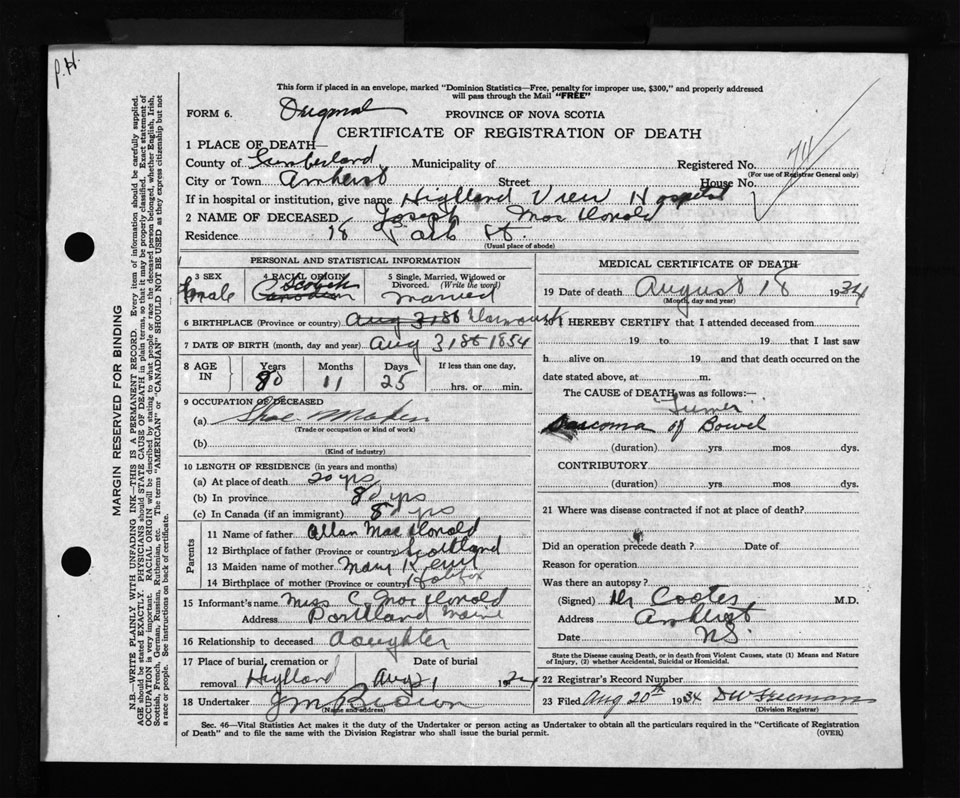 P.H.
This form if placed in an envelope, marked "Dominion Statistics—Free, penalty for improper use, $300," and properly addressed
will pass through the Mail "FREE"
FORM 6. Original PROVINCE OF NOVA SCOTIA
CERTIFICATE OF REGISTRATION OF DEATH
1 PLACE OF DEATH—
County of Cumberland Municipality of Registered No. 74
(For use of Registrar General only)
City or Town Amherst Street House No.
If in hospital or institution, give name Highland View Hospital
2 NAME OF DECEASED Joseph Mac Donald
Residence 18 Park St.
(Usual place of abode)
PERSONAL AND STATISTICAL INFORMATION
3 SEX male
4 RACIAL ORIGIN Scotch Canadian
5 Single, Married, Widowed or Divorced. (Write the word) Married
6 BIRTHPLACE (Province or country) Aug 31st
7 DATE OF BIRTH (month, day and year) Aug 31st 1854
8 AGE IN Years 80 Months 11 Days 25 If less than one day, hrs. or min.
9 OCCUPATION OF DECEASED
(a) Shoe Maker
(Trade or occupation or kind of work)
(b)
(Kind of industry)
10 LENGTH OF RESIDENCE (in years and months)
(a) At place of death 20 yrs
(b) In province 80 yrs
(c) In Canada (if an immigrant) 80 yrs
Parents
11 Name of father Allan Mac Donald
12 Birthplace of father (Province or country) Scotland
13 Maiden name of mother Mary
14 Birthplace of mother (Province or country) Halifax
15 Informant's name Miss C. Mac Donald
Address Portland Maine
16 Relationship to deceased daughter
17 Place of burial, cremation or removal Highland Date of burial Aug 21 1934
18 Undertaker J M Brown
(Name and address)
MEDICAL CERTIFICATE OF DEATH
19 Date of death August 18 1934
(Month, day and year)
20 I HEREBY CERTIFY that I attended deceased from
19 to 19 that I last saw
h alive on 19 and that death occurred on the
date stated above, at m.
The CAUSE of DEATH was as follows:—
Tumor
Sarcoma of Bowel
(duration) yrs. mos. dys.
CONTRIBUTORY
(duration) yrs. mos. dys.
21 Where was disease contracted if not at place of death?
Did an operation precede death? Date of
Reason for operation
Was there an autopsy?
(Signed) Dr M.D.
Address Amherst
Date N.S.
State the Disease causing Death, or in death from Violent Causes, state (1) Means and
Nature of Injury, (2) whether Accidental, Suicidal or Homicidal.
22 Registrar's Record Number
23 Filed Aug 20th 1934 D W Freeman
(Division Registrar)
Sec. 46—Vital Statistics Act makes it the duty of the Undertaker or person acting as Undertaker to obtain all the particulars required in the "Certificate of Registration
of Death" and to file the same with the Division Registrar who shall issue the burial permit. (OVER)
MARGIN RESERVED FOR BINDING
N.B.—WRITE PLAINLY WITH UNFADING INK—THIS IS A PERMANENT RECORD. Every item of information should be carefully supplied.
AGE should be stated EXACTLY. PHYSICIANS should STATE CAUSE OF DEATH in plain terms, so that it may be properly classified. Exact statement of
OCCUPATION is very important. RACIAL ORIGIN will be described by stating to what people or race the deceased person belonged, whether English, Irish,
Scottish, French, German, Russian, Ruthenian, etc. The terms "AMERICAN" or "CANADIAN" SHOULD NOT BE USED as they express citizenship but not
a race or people. See instructions on back of certificate.